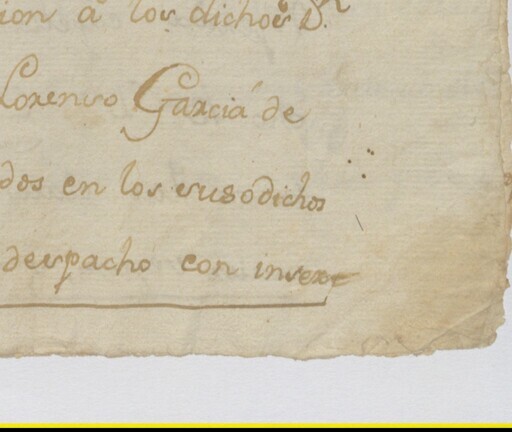 ion à los dichos D.ⁿ
Lorenso Garcia de
dos en los susodichos
despacho con inser